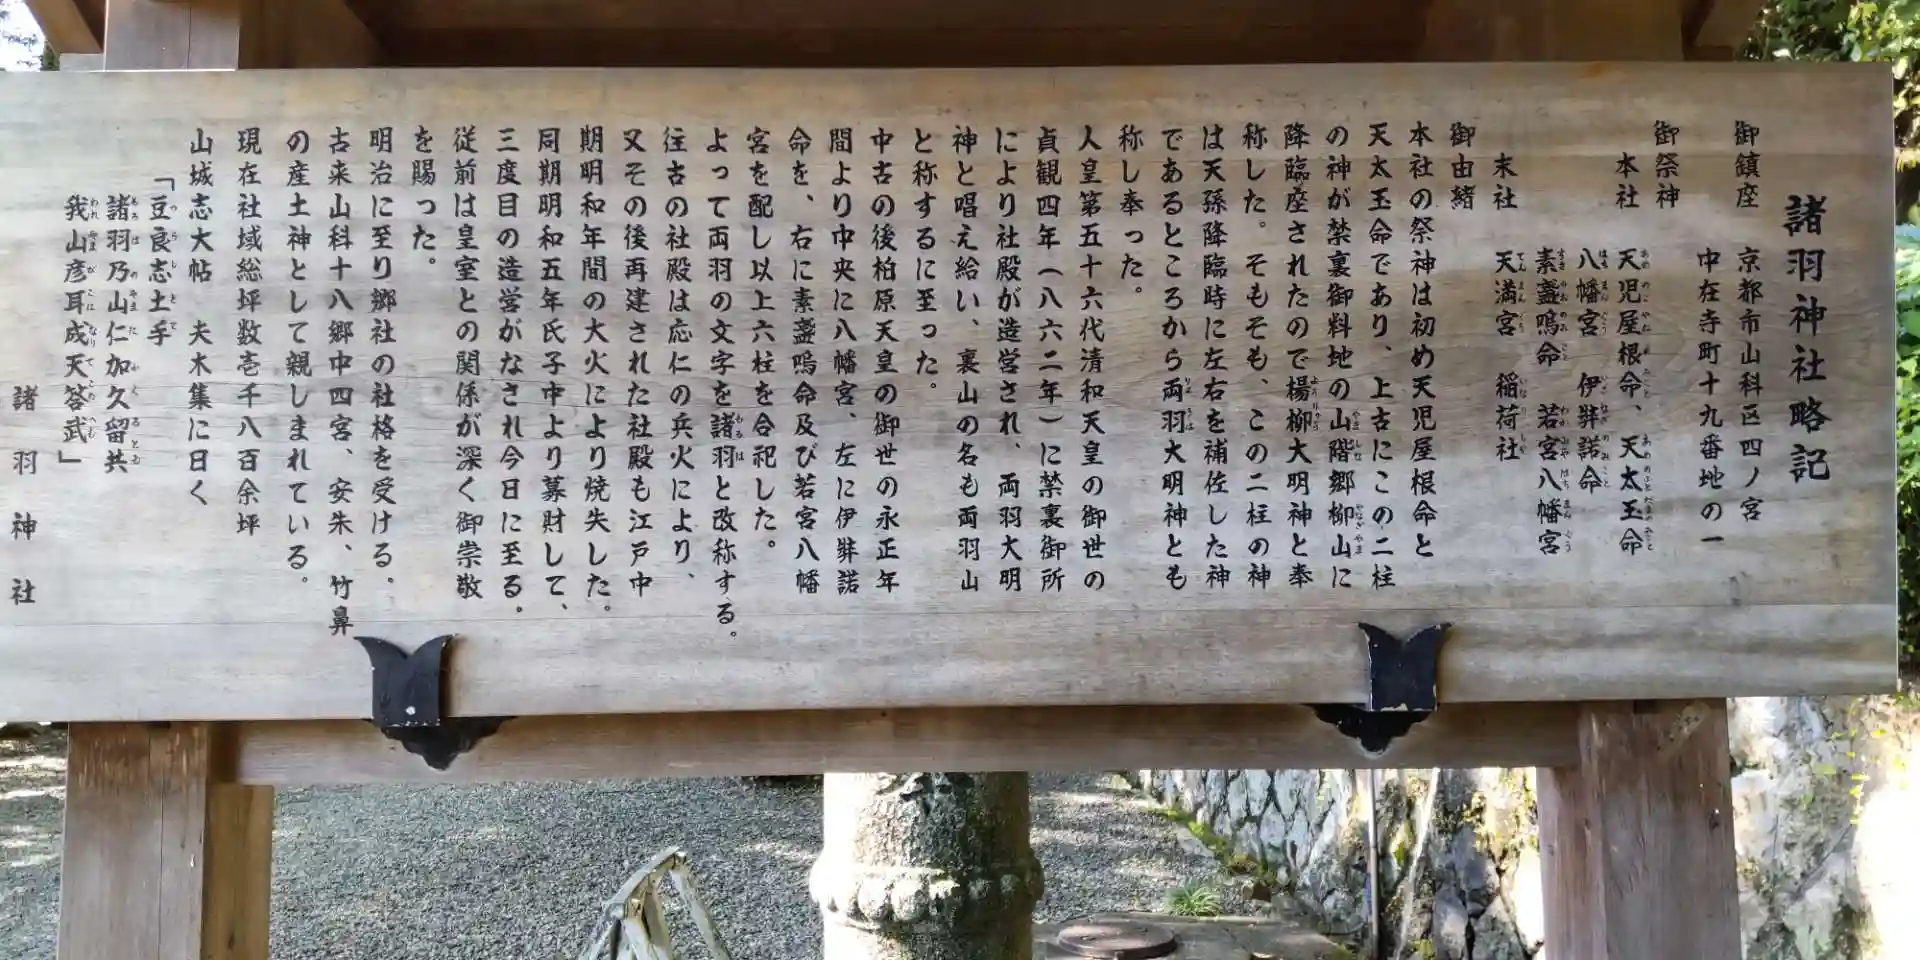 諸羽神社略記
御鎮座　京都市山科区四ノ宮
中在寺町十九番地の一
御祭神
本社　天児屋根命、天太玉命
八幡宮　伊弉諾命
素盞嗚命　若宮八幡宮
末社　天満宮　稲荷社
御由緒
本社の祭神は初め天児屋根命と
天太玉命であり、上古にこの二柱
の神が禁裏御料地の山階郷柳山に
降臨座されたので楊柳大明神と奉
称した。そもそも、この二柱の神
は天孫降臨時に左右を補佐した神
であるところから両羽大明神とも
称し奉った。
人皇第五十六代清和天皇の御世の
貞観四年(八六二年)に禁裏御所
により社殿が造営され、両羽大明
神と唱え給い、裏山の名も両羽山
と称するに至った。
中古の後柏原天皇の御世の永正年
間より中央に八幡宮、左に伊弉諾
命を、右に素盞嗚命及び若宮八幡
宮を配し以上六柱を合祀した。
よって両羽の文字を諸羽と改称する。
往古の社殿は応仁の兵火により、
又その後再建された社殿も江戸中
期明和年間の大火により焼失した。
同期明和五年氏子中より募財して、
三度目の造営がなされ今日に至る。
従前は皇室との関係が深く御崇敬
を賜った。
明治に至り郷社の社格を受ける。
古来山科十八郷中四宮、安朱、竹鼻
の産土神として親しまれている。
現在社域総坪数壱千八百余坪
山城志大帖　夫木集に曰く
「豆良志土手
諸羽乃山仁加久留共
我山彦耳成天答武」
諸羽神社